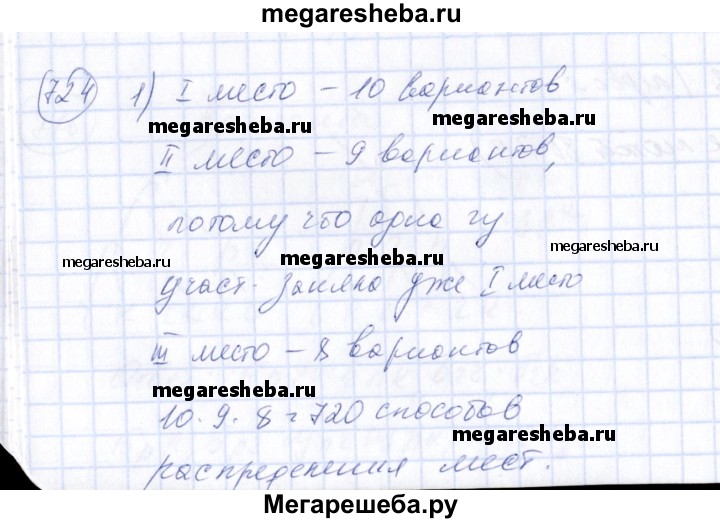 megaresheba.ru
724 1) I место – 10 вариантов
megaresheba.ru
II место – 9 вариантов,
megaresheba.ru
потому что одна
megaresheba.ru megaresheba.ru megaresheba.ru
участ. заняла уже I место
III место – 8 вариантов
megaresheba.ru
10 · 9 · 8 = 720 способов
megaresheba.ru
распределения мест.
Мегарешеба.ру